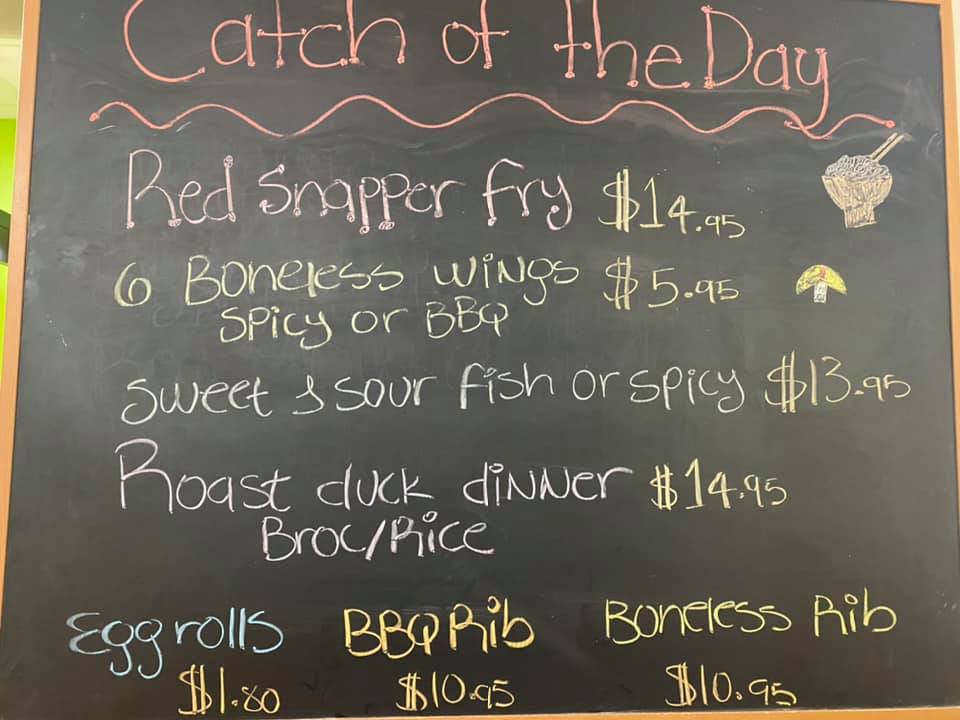 Catch of the Day
Red Snapper Fry $14.95
6 Boneless Wings $5.95
Spicy or BBQ
Sweet & Sour fish or spicy $13.95
Roast duck dinner $14.95
Broc/Rice
Egg rolls BBQ Rib Boneless Rib
$1.80 $10.95 $10.95